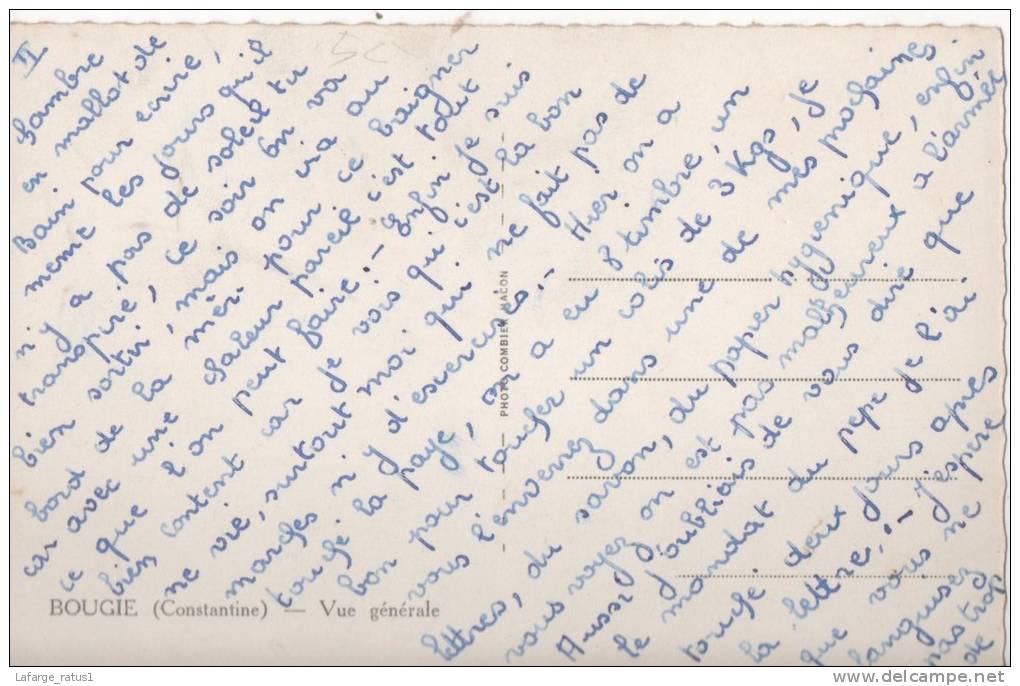 II
chambre
en maillot de
Bain pour ecrire,
meme les jours qu'il
n'y a pas de soleil tu
transpire, ce soir on va
bien sortir, mais on ira au
bord de la mer pour ce baigner
car avec une chaleur pareil c'est tout
ce que l'on peut faire. - Enfin je suis
bien content car je vois que c'est la bon
ne vie, surtout moi qui ne fait pas de
marches n'y d'exercices. - Hier on a
touché la paye, on a eu 8 timbre, un
bon pour toucher un colis de 3 Kgs, je
vous l'enverrez dans une de mes prochaines
lettres, du savon, du papier hygienique, enfin
vous voyez on est pas malheureux a l'armée
Aussi j'oubliais de vous dire que
le mandat du pepe je l'ai
touché deux jours apres
la lettre, - j'espere
que vous ne
languissez
pas trop
de
PHOTO COMBIER MACON
BOUGIE (Constantine) — Vue générale
Lafarge_ratus1
delcampe.net